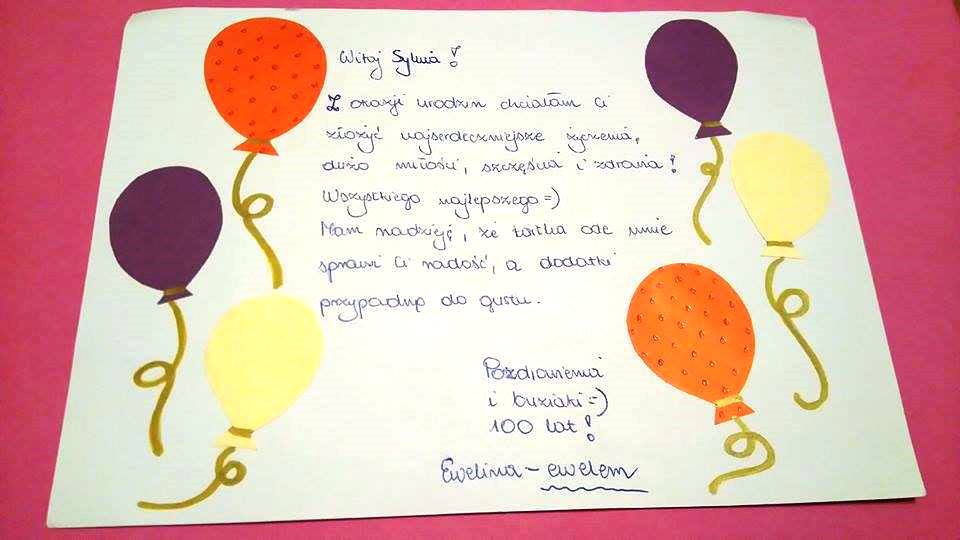 Witaj Sylwia!
Z okazji urodzin chciałam Ci
złożyć najserdeczniejsze życzenia,
dużo miłości, szczęścia i zdrowia!
Wszystkiego najlepszego =)
Mam nadzieję, że kartka ode mnie
sprawi Ci radość, a dodatki
przypadną do gustu.
Pozdrowienia
i buziaki =)
100 lat!
Ewelina - ewelem